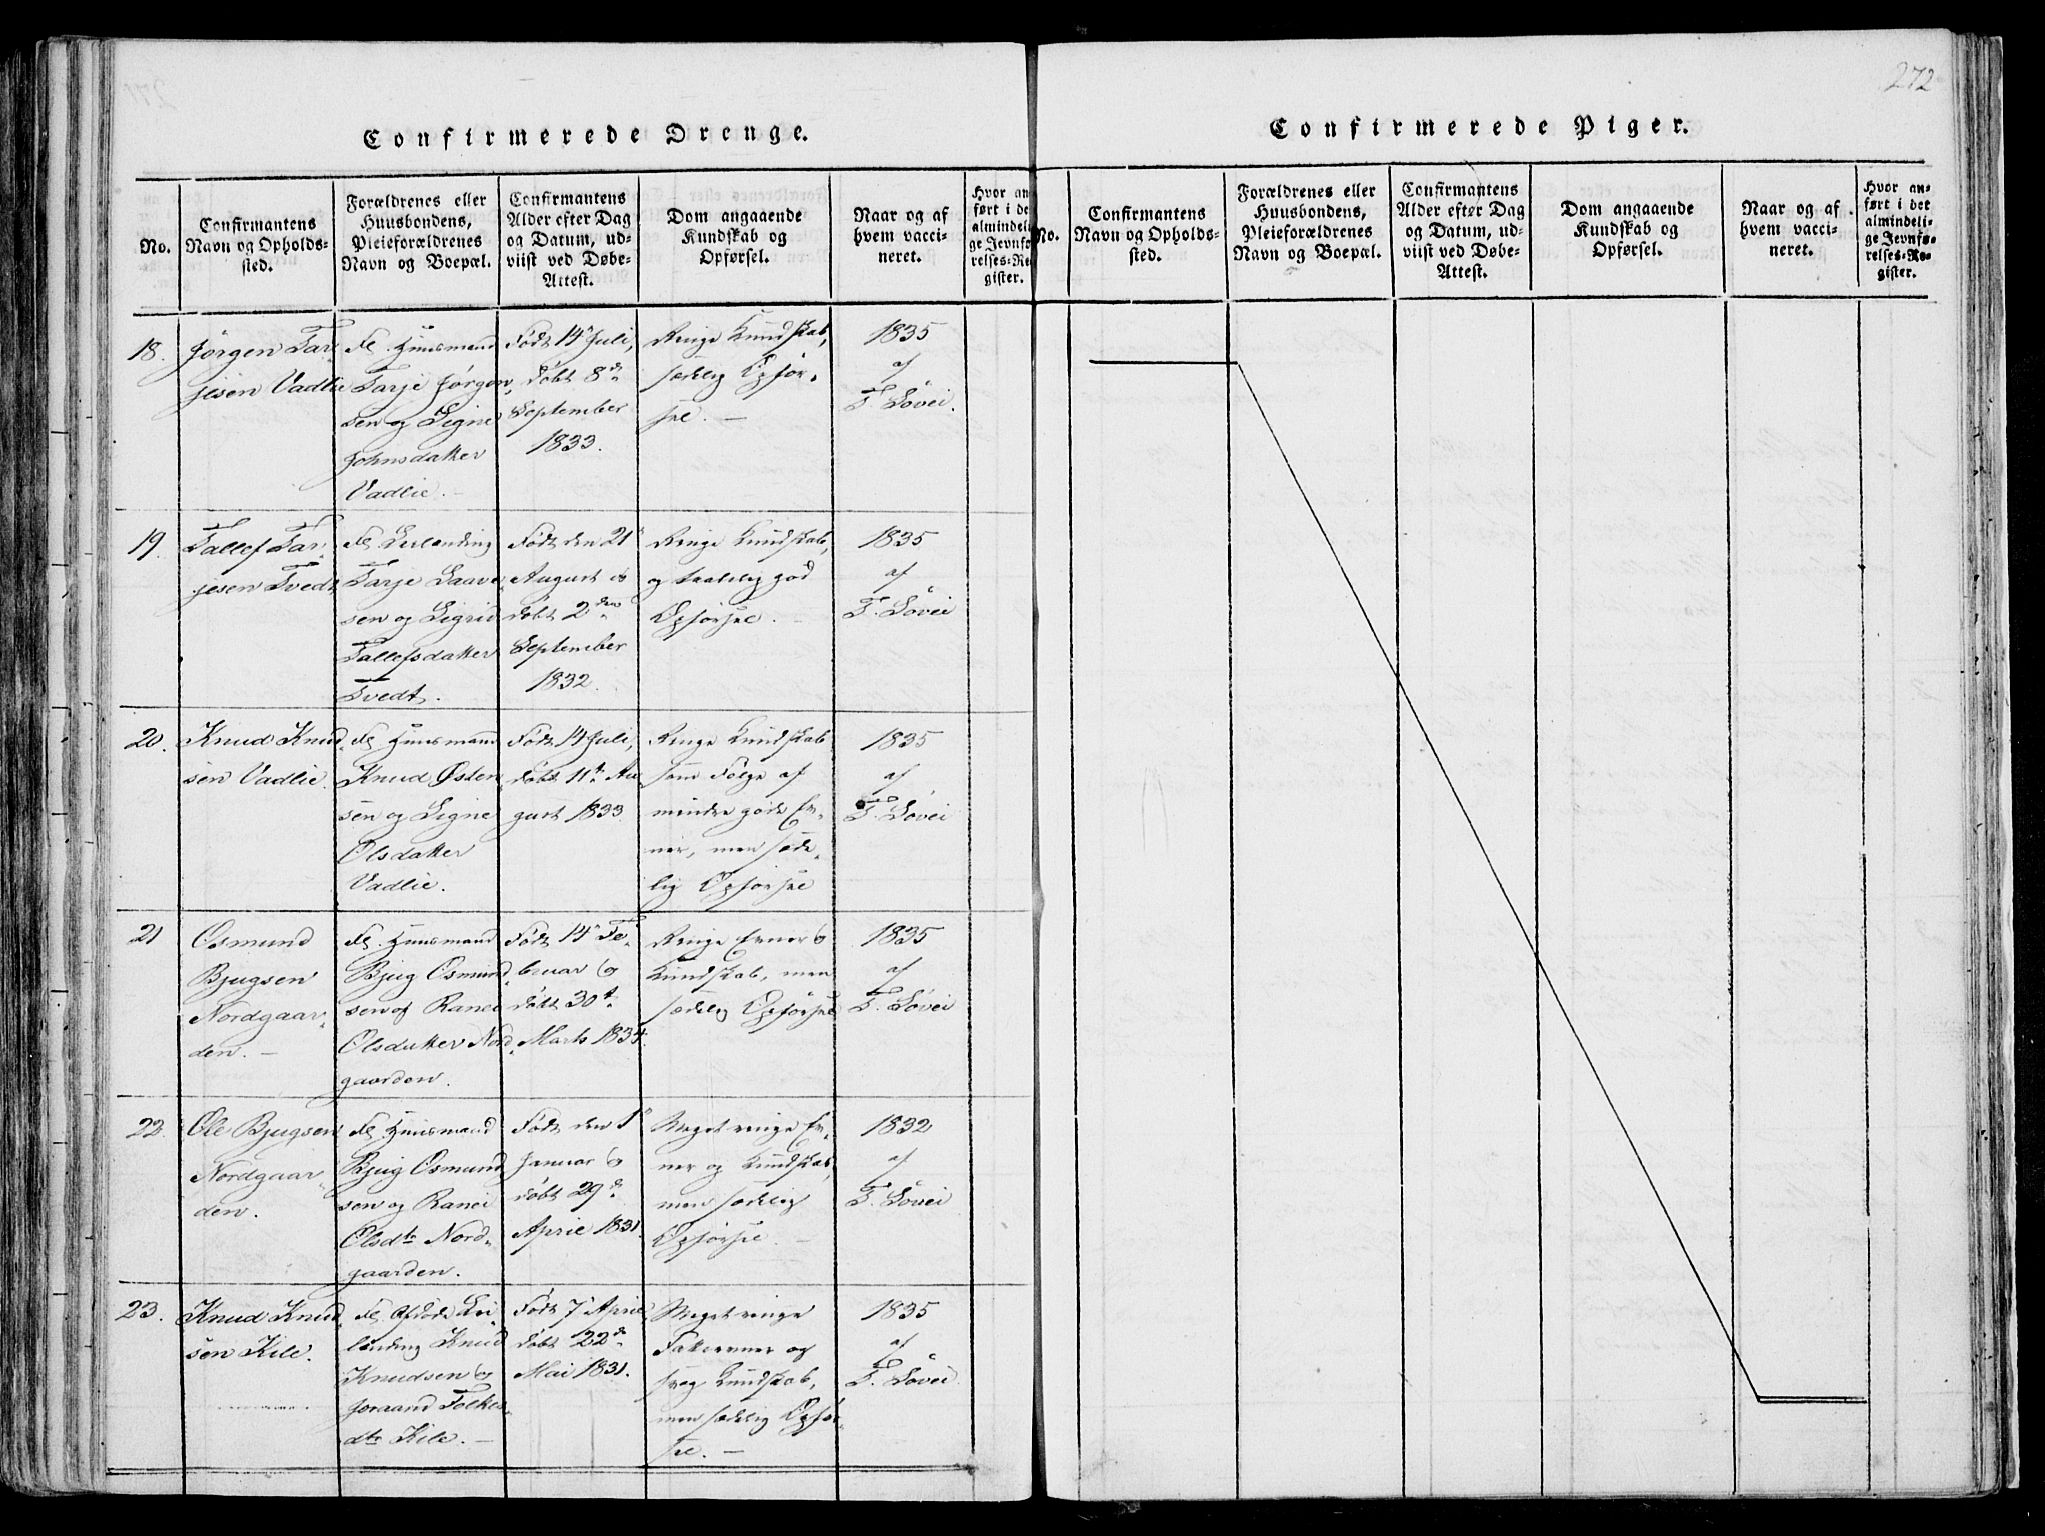 272
Confirmerede Drenge.
No.
Confirmantens
Navn og Opholds-
sted.
Forældrenes eller
Huusbondens,
Pleieforældrenes
Navn og Boepæl.
Confirmantens
Alder efter Dag
og Datum, ud-
viist ved Døbe-
Attest.
Dom angaaende
Kundskab og
Opførsel.
Naar og af
hvem vacci-
neret.
Hvor an-
ført i det
almindeli-
ge Jevnfø-
relses-Re-
gister.
18.
Jørgen Tar
jesen Vadlie
Huusmand
Tarje Jørgen
sen og Signe
Johnsdatter
Vadlie.
Født 14 Juli,
døbt 8de
September
1833.
Ringe Kundskab,
sædelig Opfør-
sel. —
1835
af
T. Løvei.
19.
Tallef Tar
jesen Tvedt
Tarje Saave
sen og Sigrid
Tallefsdatter
Tvedt.
Født den 21
August og
døbt 2den
September
1832.
Ringe Kundskab,
og taalelig god
Opførsel.
1835
af
T. Løvei
20.
Knud Knud
sen Vadlie.
Huusmand
Knud Østen
sen og Signe
Olsdatter
Vadlie.
Født 14 Juli,
døbt 11te Au
gust 1833.
Ringe Kundskab
som Følge af
mindre gode Ev-
ner, men sæde-
lig Opførsel
1835
af
T. Løvei
21
Osmund
Bjugsen
Nordgaar-
den. —
Huusmand
Bjug Osmund
sen og Ranei
Olsdatter Nord-
gaarden.
Født 14 Fe-
bruar og
døbt 30te
Marts 1834.
Ringe Evner og
Kundskab, men
sædelig Opførsel
1835
af
T. Løvei
22.
Ole Bjugsen
Nordgaar
den.
Huusmand
Bjug Osmund
sen og Ranei
Olsdtr Nord-
gaarden.
Født den 1
Januar og
døbt 29de
April 1831.
Meget ringe Ev-
ner og Kundskab,
men sædelig
Opførsel.
1832
af
T. Løvei
23.
Knud Knud
sen Kile.
Afdøde Lei-
lænding Knud
Knudsen og
Joraand Folkes-
dtr Kile. —
Født 7 April
døbt 22de
Mai 1831.
Meget ringe
Fatteevner og
svag Kundskab,
men sædelig Opfør-
sel. —
1835
af
T. Løvei
Confirmerede Piger.
No.
Confirmantens
Navn og Opholds-
sted.
Forældrenes eller
Huusbondens,
Pleieforældrenes
Navn og Boepæl.
Confirmantens
Alder efter Dag
og Datum, ud-
viist ved Døbe-
Attest.
Dom angaaende
Kundskab og
Opførsel.
Naar og af
hvem vacci-
neret.
Hvor an-
ført i det
almindeli-
ge Jevnfø-
relses-Re-
gister.